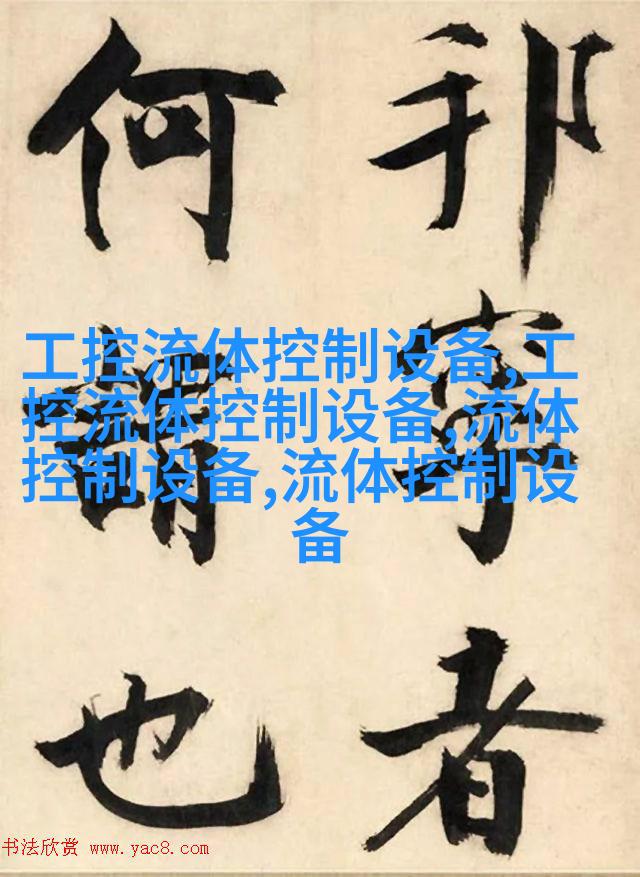 邦寧者
何謂也
工控流体控制设备,工
控流体控制设备,流体
控制设备,流体控制设
备
书法欣赏 www.yac8.com